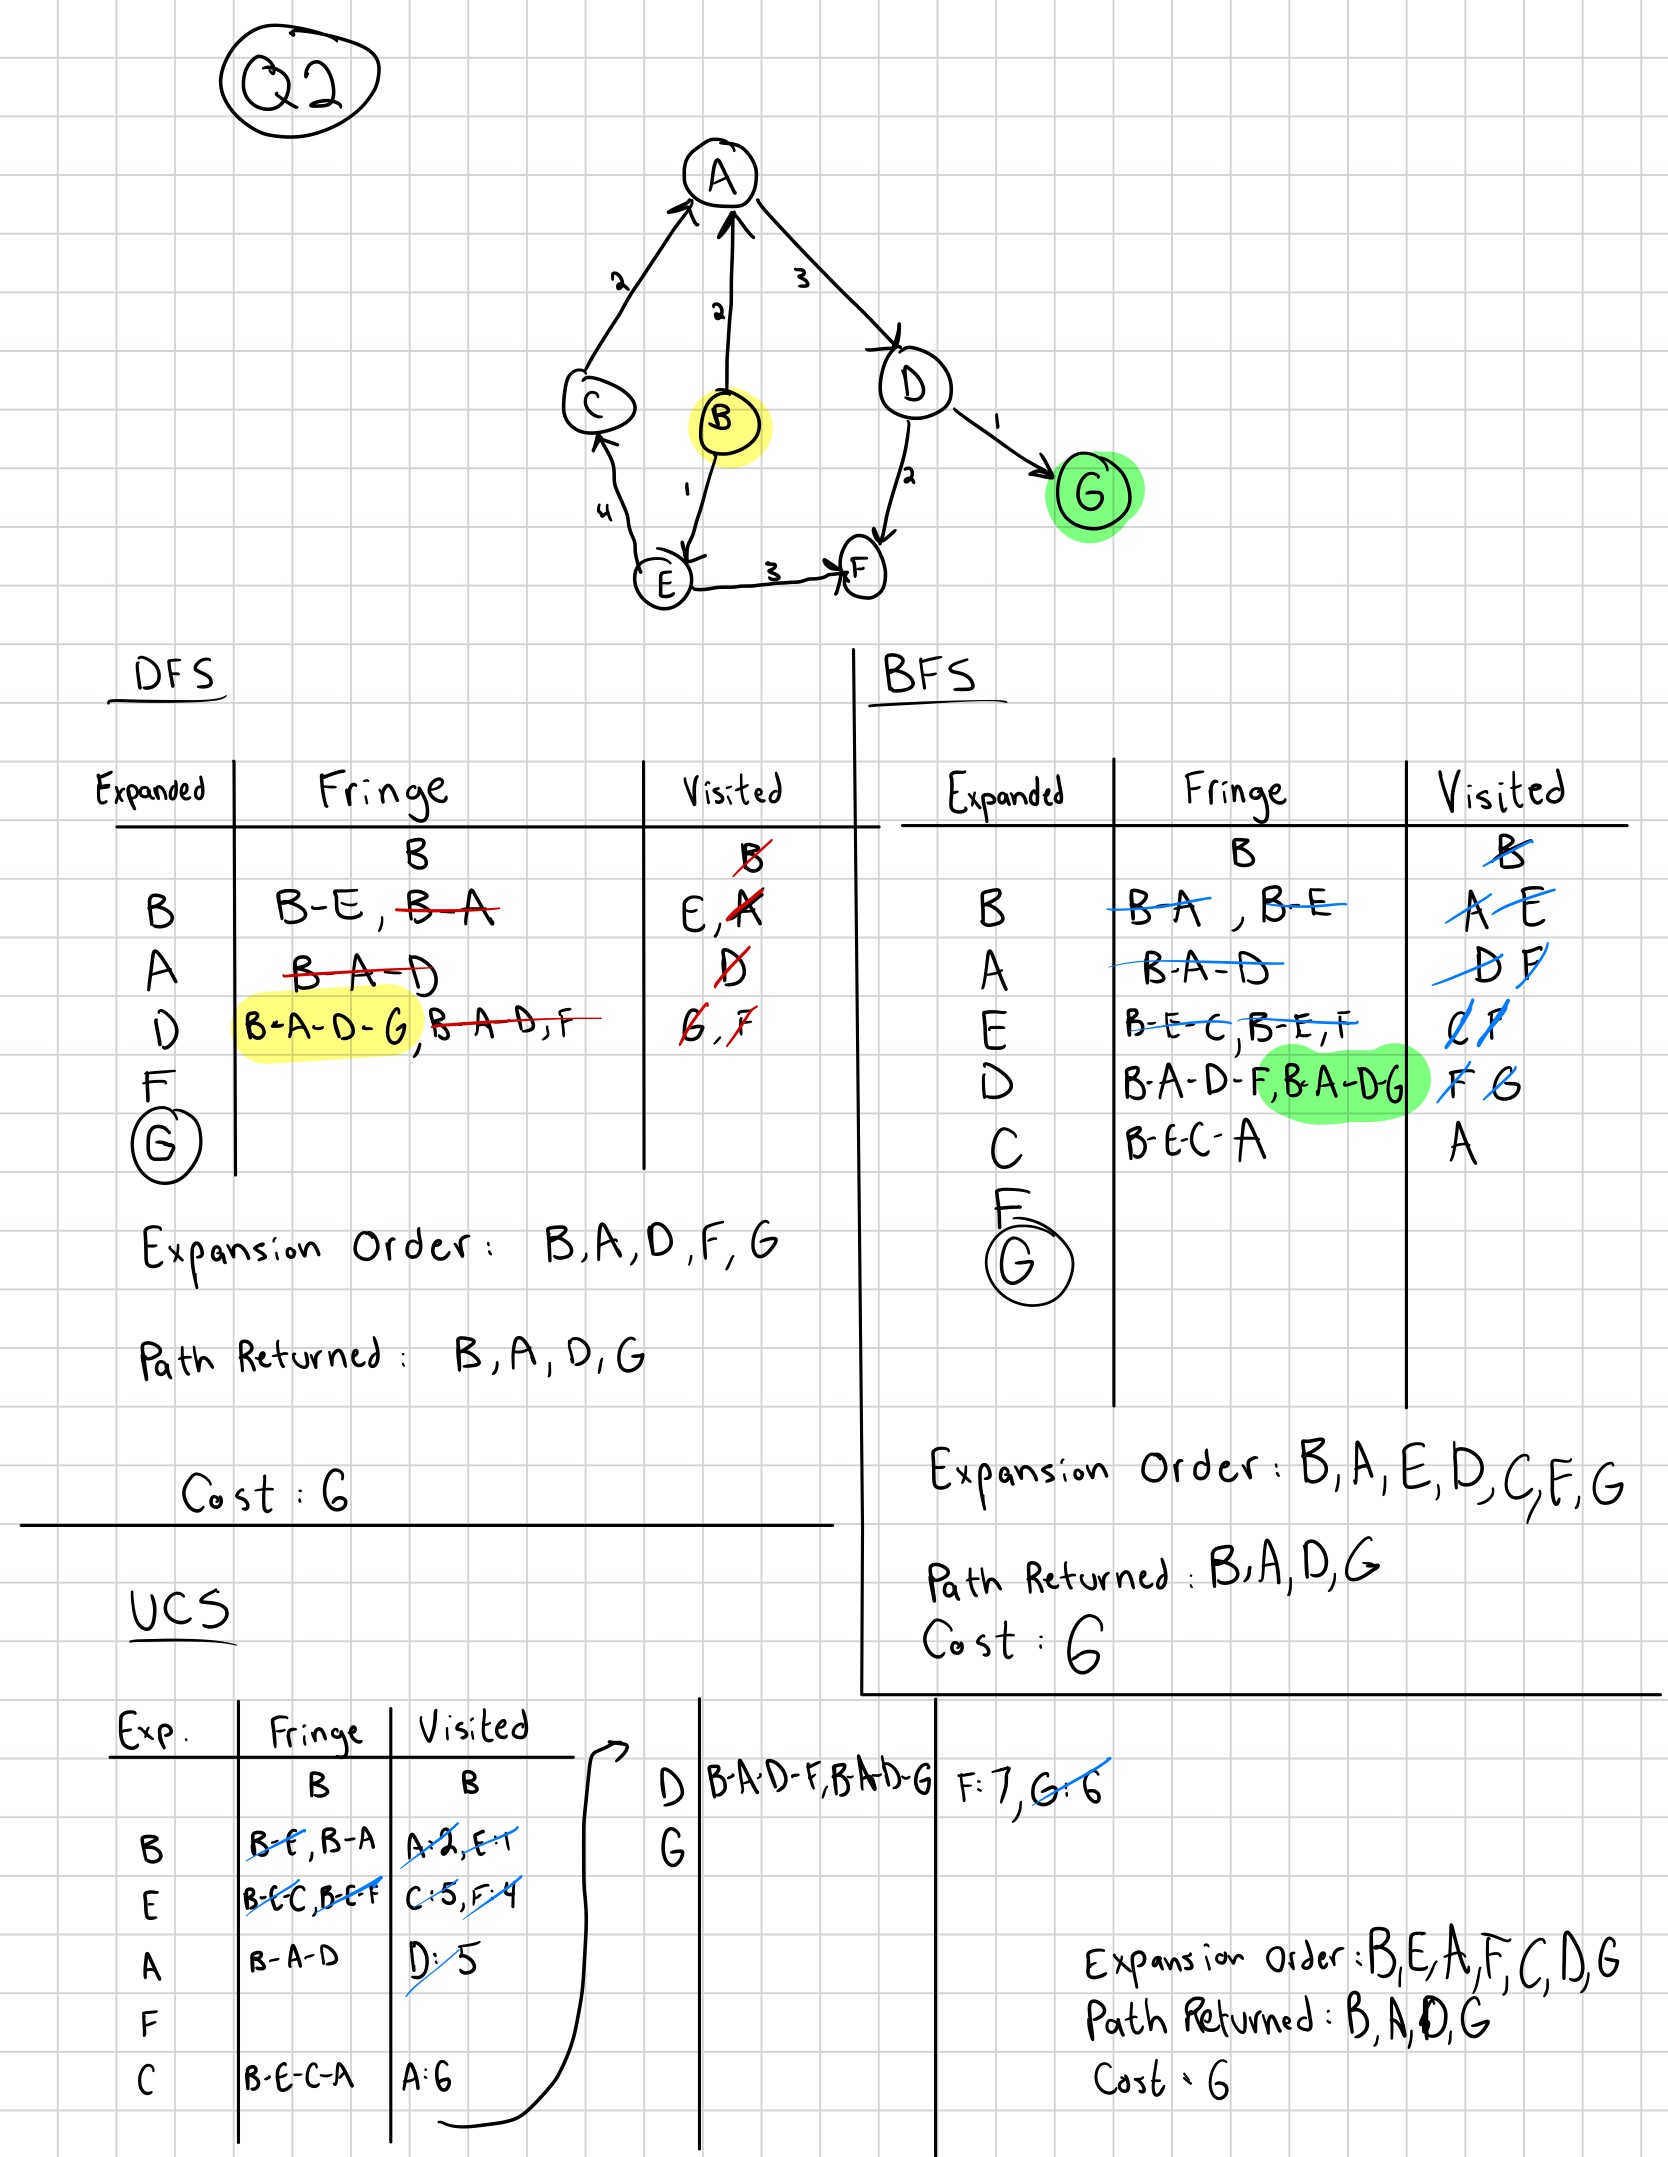 Q2
A
2
2
3
C
B
D
1
G
4
1
2
E
3
F
DFS
Expanded Fringe Visited
B B
B B-E, B-A E, A
A B-A-D D
D B-A-D-G, B-A-D, F G, F
F
G
Expansion Order: B, A, D, F, G
Path Returned: B, A, D, G
Cost: 6
BFS
Expanded Fringe Visited
B B
B B-A, B-E A E
A B-A-D D F
E B-E-C, B-E, F C F
D B-A-D-F, B-A-D-G F G
C B-E-C-A A
F
G
Expansion Order: B, A, E, D, C, F, G
Path Returned: B, A, D, G
Cost: 6
UCS
Exp. Fringe Visited
B B
B B-E, B-A A:2, E:1
E B-E-C, B-E-F C:5, F:4
A B-A-D D:5
F
C B-E-C-A A:6
D B-A-D-F, B-A-D-G F:7, G:6
G
Expansion Order: B, E, A, F, C, D, G
Path Returned: B, A, D, G
Cost: 6